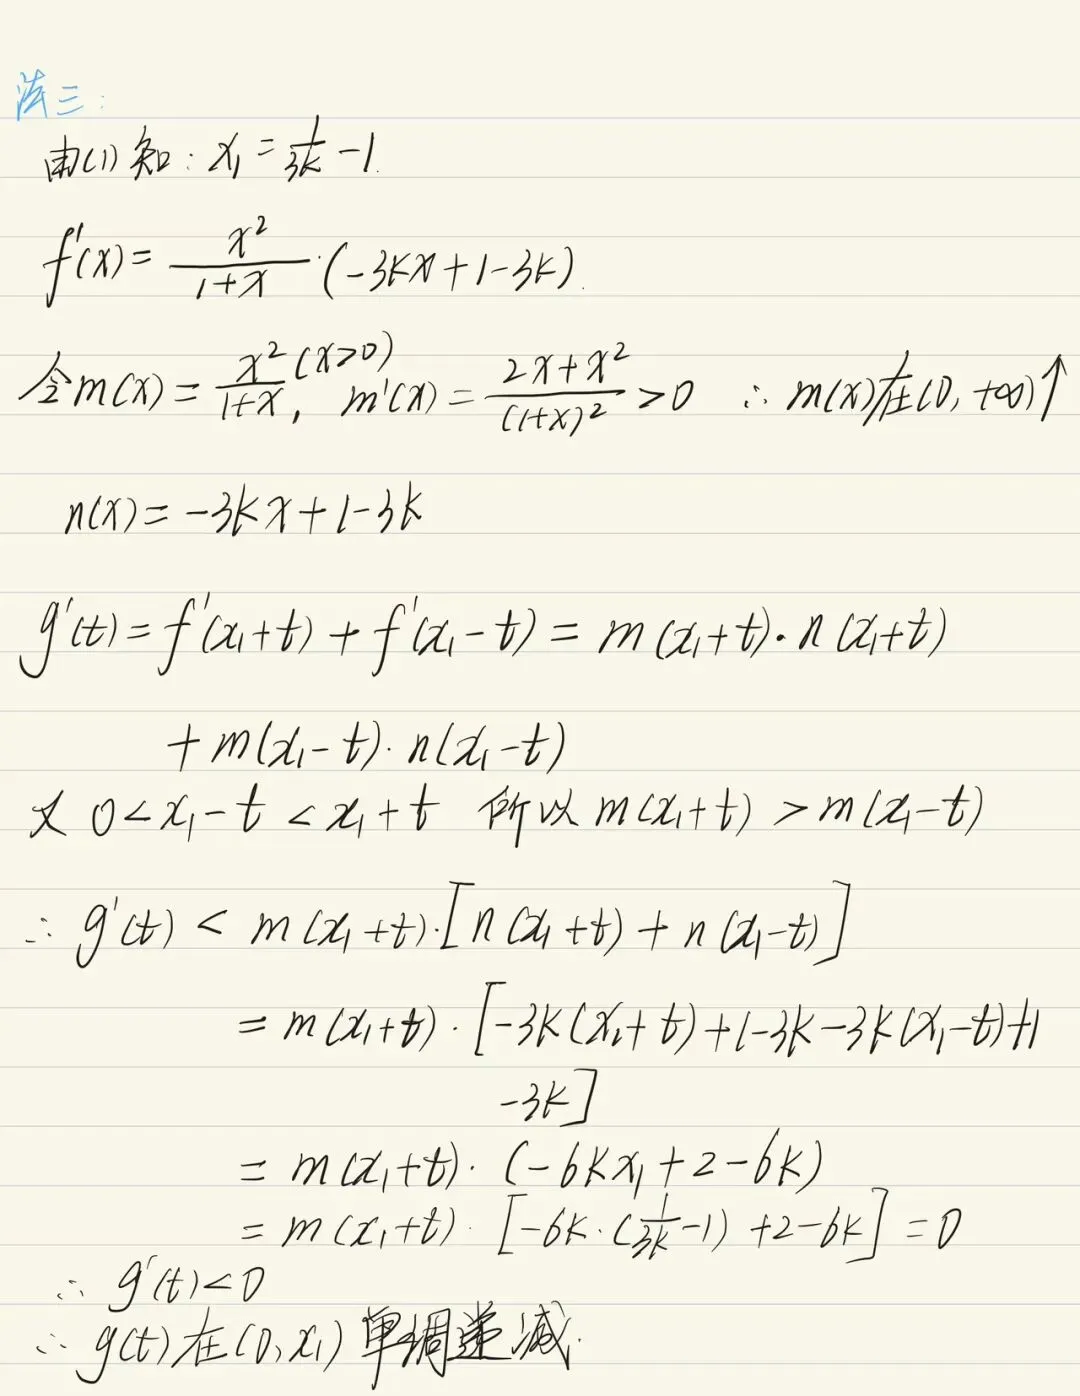 法三:
由(1)知: x₁ = 1/3k - 1.
f'(x) = x²/1+x · (-3kx+1-3k).
令m(x) = x²/1+x (x>0), m'(x) = 2x+x²/(1+x)² > 0 ∴ m(x)在(0,+∞)↑
n(x) = -3kx+1-3k
g'(t) = f'(x₁+t) + f'(x₁-t) = m(x₁+t)·n(x₁+t)
+ m(x₁-t)·n(x₁-t)
又 0<x₁-t<x₁+t 所以 m(x₁+t) > m(x₁-t)
∴ g'(t) < m(x₁+t)·[n(x₁+t) + n(x₁-t)]
= m(x₁+t)·[-3k(x₁+t)+1-3k-3k(x₁-t)+1
-3k]
= m(x₁+t)·(-6kx₁+2-6k)
= m(x₁+t)·[-6k·(1/3k-1)+2-6k] = 0
∴ g'(t)<0
∴ g(t)在(0,x₁)单调递减.